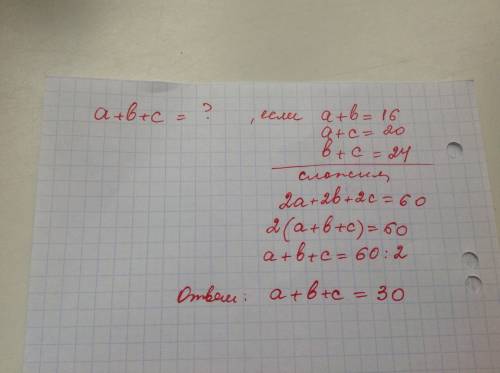 a+b+c = ? , если a+b=16
a+c=20
b+c=24
сложим
2a+2b+2c=60
2(a+b+c)=60
a+b+c=60:2
Ответ: a+b+c=30